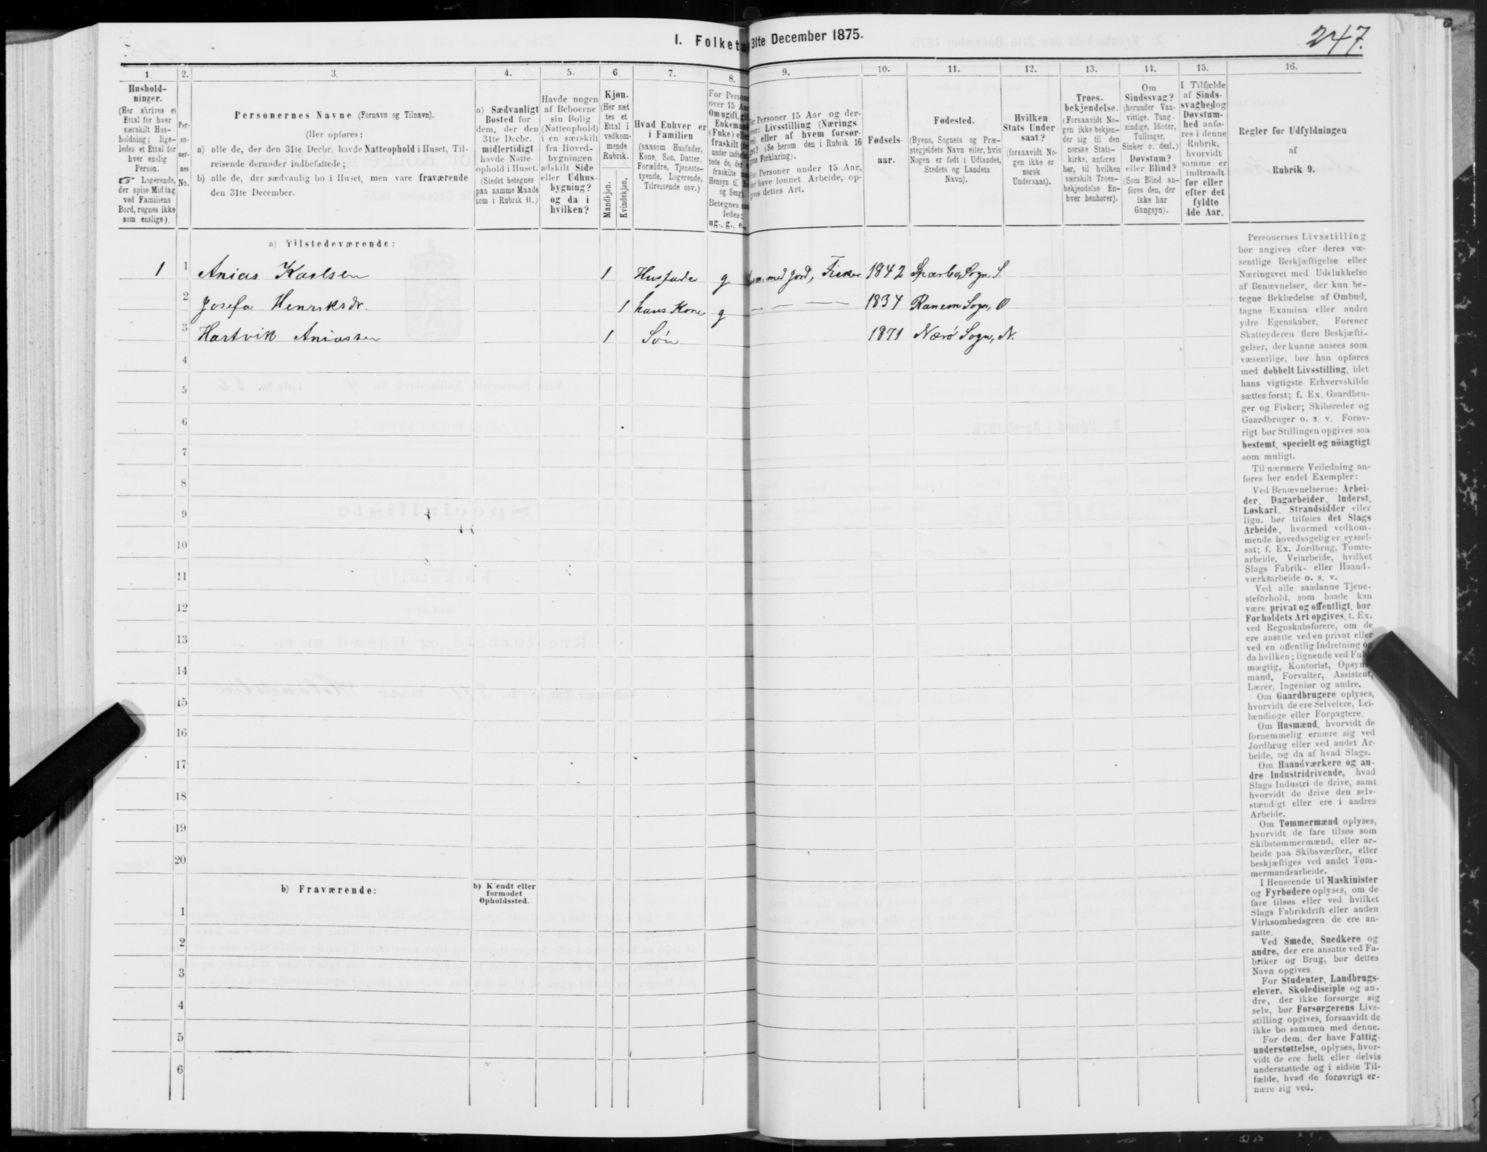 247.
I. Folket 31te December 1875.
1. 2. 3. 4. 5. 6. 7. 8. 9. 10. 11. 12. 13. 14. 15. 16.
Hushold-
ninger.
(Her skrives et
Ettal for hver
særskilt Hus-
holdning; lige-
ledes et Ettal for
hver enslig
Person.
☞ Logerende,
der spise Middag
ved Familiens
Bord, regnes ikke
som enslige).
Per-
so-
ner-
nes
No.
Personernes Navne (Fornavn og Tilnavn).
(Her opføres:
a) alle de, der den 31te Decbr. havde Natteophold i Huset, Til-
reisende derunder indbefattede;
b) alle de, der sædvanlig bo i Huset, men vare fraværende
den 31te December.
a) Sædvanligt
Bosted for
dem, der den
31te Decbr.
midlertidigt
havde Natte-
ophold i Huset.
(Stedet betegnes
paa samme Maade
som i Rubrik 11.)
Havde nogen
af Beboerne
sin Bolig
(Natteophold)
i en særskilt
fra Hoved-
bygningen
adskilt Side
eller Udhus-
bygning?
og da i
hvilken?
Kjøn.
(Her sæt
tes et
Ettal i
vedkom-
mende
Rubrik.
Mandkjøn.
Kvindekjøn.
Hvad Enhver er
i Familien
(saasom Husfader,
Kone, Søn, Datter,
Forældre, Tjeneste-
tyende, Logerende,
Tilreisende osv.)
Fødsels-
aar.
Fødested.
(Byens, Sognets og Præ-
stegjeldets Navn eller, hvis
Nogen er født i Udlandet,
Stedets og Landets
Navn).
Hvilken
Stats Under
saat?
(foraavidt No-
gen ikke er
norsk
Undersaat).
Troes-
bekjendelse.
(Forsaavidt No-
gen ikke bekjen-
der sig til den
norske Stats-
kirke, anføres
her, til hvilken
særskilt Troes-
bekjendelse En-
hver henhører).
Om
Sindssvag?
(herunder Van-
vittige, Tung-
sindige, Idioter,
Tullinger,
Sinker o. desl.)
Døvstum?
eller Blind?
(Som Blind an-
føres den, der
ikke har
Gangsyn).
I Tilfælde
af Sinds-
svaghed og
Døvstum-
hed anfø-
res i denne
Rubrik,
hvorvidt
samme er
indtraadt
før eller
efter det
fyldte
4de Aar.
Regler for Udfyldningen
af
Rubrik 9.
a) Tilstedeværende:
1 1 Anias Karlsen 1 Husfader g med Jord, Fisker 1842 Sparbo Sogn, S
2 Josefa Henriksdr. 1 hans Kone g 1834 Ranem Sogn, O
3 Hartvik Aniassen 1 Søn 1871 Nærø Sogn, N.
4
5
6
7
8
9
10
11
12
13
14
15
16
17
18
19
20
b) Fraværende:
b) Kjendt eller
formodet
Opholdssted.
1
2
3
4
5
6
Personernes Livsstilling
bør angives efter deres væ-
sentlige Beskjæftigelse eller
Næringsvei med Udelukkelse
af Benævnelser, der kun be-
tegne Beklædelse af Ombud,
tagne Examina eller andre
ydre Egenskaber. Forener
Skatteyderen flere Beskjæfti-
gelser, der kunne ansees som
væsentlige, bør han opføres
med dobbelt Livsstilling, idet
hans vigtigste Erhvervskilde
sættes først; f. Ex. Gaardbru-
ger og Fisker; Skibsreder og
Gaardbruger o. s. v. Forøv-
rigt bør Stillingen opgives saa
bestemt, specielt og nøiagtigt
som muligt.
Til nærmere Veiledning an-
føres her endel Exempler:
Ved Benævnelserne: Arbei-
der, Dagarbeider, Inderst,
Løskarl, Strandsidder eller
lign. bør tilføies det Slags
Arbeide, hvormed vedkom-
mende hovedsagelig er syssel-
sat; f. Ex. Jordbrug, Tomte-
arbeide, Veiarbeide, hvilket
Slags Fabrik- eller Haand-
værksarbeide o. s. v.
Ved alle saadanne Tjene-
steforhold, som baade kan
være privat og offentligt, bør
Forholdets Art opgives, f. Ex.
ved Regnskabsførere, om de
ere ansatte ved en privat eller
ved en offentlig Indretning og
da hvilken; lignende ved Ful
mægtig, Kontorist, Opsyns
mand, Forvalter, Assistent,
Lærer, Ingeniør og andre.
Om Gaardbrugere oplyses,
hvorvidt de ere Selveiere, Lei-
lændinge eller Forpagtere.
Om Husmænd, hvorvidt de
fornemmelig ernære sig ved
Jordbrug eller ved andet Ar-
beide, og da af hvad Slags.
Om Haandværkere og an-
dre Industridrivende, hvad
Slags Industri de drive, samt
hvorvidt de drive den selv-
stændigt eller ere i andres
Arbeide.
Om Tømmermænd oplyses,
hvorvidt de fare tilsøs som
Skibstømmermænd, eller ar-
beide paa Skibsværfter, eller
beskjæftiges ved andet Tøm-
mermandsarbeide.
I Henseende til Maskinister
og Fyrbødere oplyses, om de
fare tilsøs eller ved hvilket
Slags Fabrikdrift eller anden
Virksomhedsgren de ere an-
satte.
Ved Smede, Snedkere og
andre, der ere ansatte ved Fa-
briker og Brug, bør dettes
Navn opgives.
For Studenter, Landbrugs-
elever, Skoledisciple og an-
dre, der ikke forsørge sig
selv, bør Forsørgerens Livs-
stilling opgives, forsaavidt de
ikke bo sammen med denne.
For dem, der have Fattig-
understøttelse, oplyses, hvor-
vidt de ere helt eller delvis
understøttede og i sidste Til-
fælde, hvad de forøvrigt er-
nære sig ved.